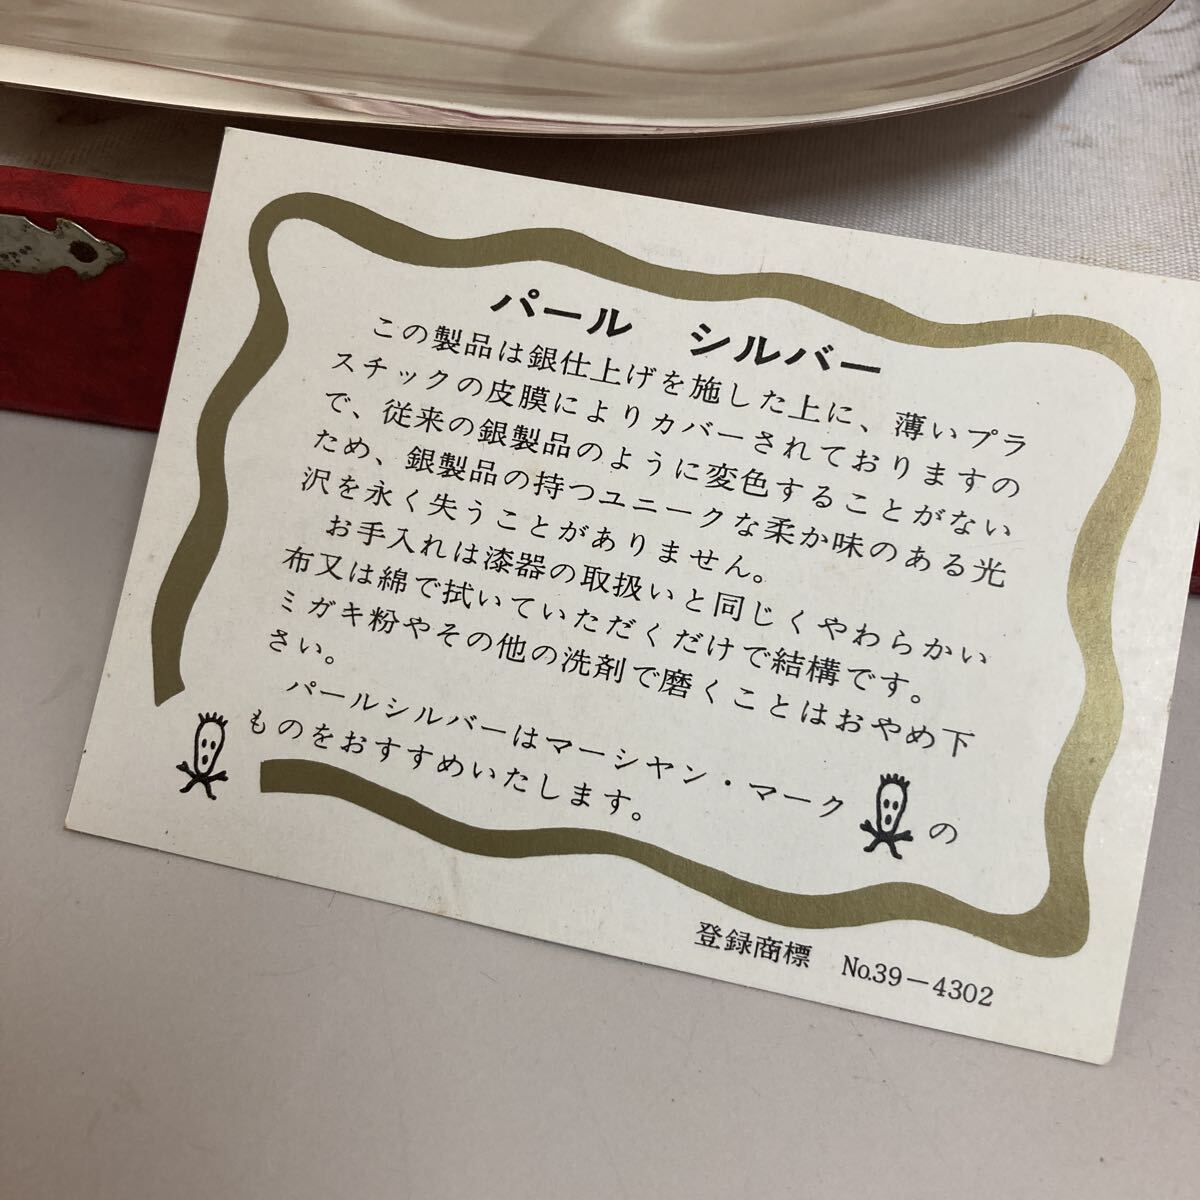 パール　シルバー
この製品は銀仕上げを施した上に、薄いプラ
スチックの皮膜によりカバーされておりますの
で、従来の銀製品のように変色することがない
ため、銀製品の持つユニークな柔か味のある光
沢を永く失うことがありません。
お手入れは漆器の取扱いと同じくやわらかい
布又は綿で拭いていただくだけで結構です。
ミガキ粉やその他の洗剤で磨くことはおやめ下
さい。
パールシルバーはマーシヤン・マーク の
ものをおすすめいたします。
登録商標　No.39－4302